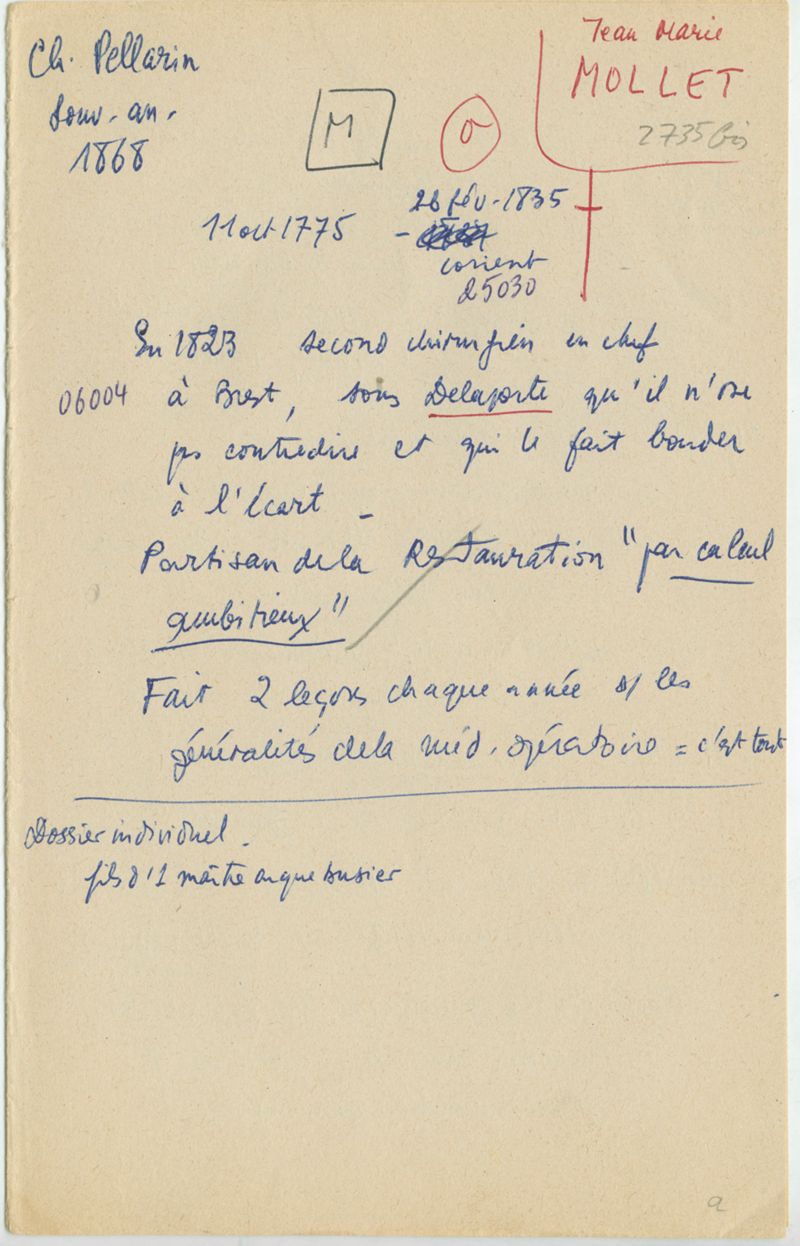 Ch. Pellarin
Souv. an.
1868
M
O
Jean Marie
MOLLET
2735 bis
11 oct 1775 - 26 fév. 1835
Lorient
25030
En 1823 second chirurgien en chef
06004 à Brest, sous Delaporte qu'il n'ose
ps contredire et qui le fait bouder
à l'écart -
Partisan de la Restauration "par calcul
ambitieux"
Fait 2 leçons chaque année s/ les
généralités de la méd. opératoire = c'est tout
Dossier individuel.
fils d'1 maître arquebusier
a